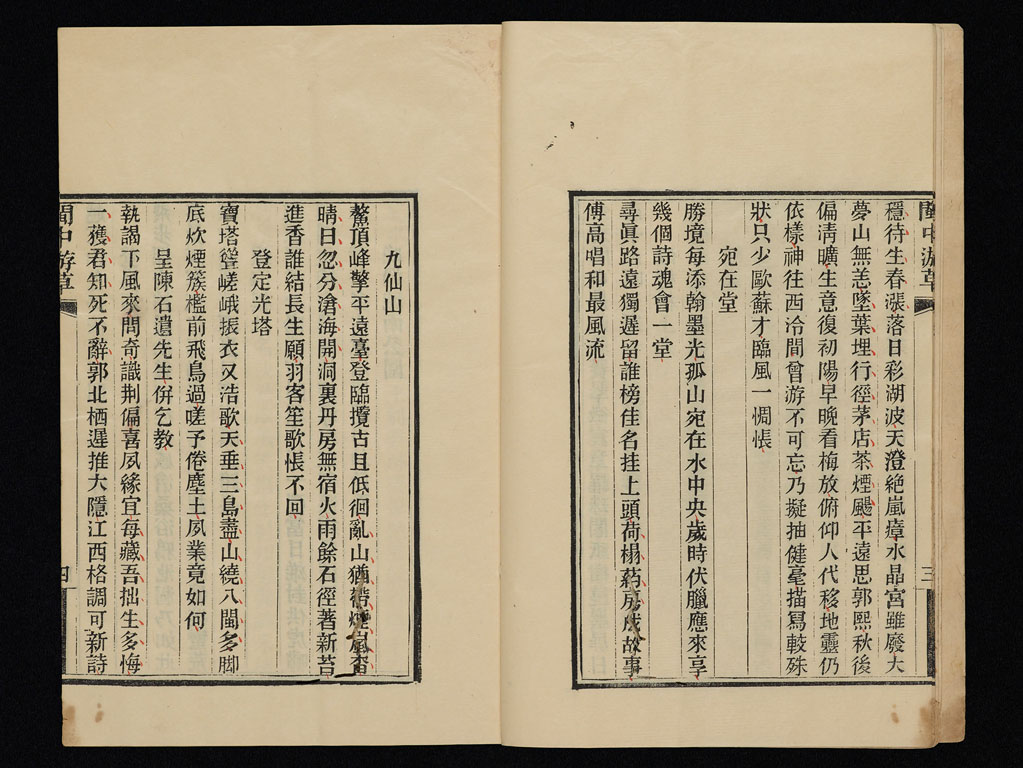 閩中游草
三
穩待生春漲落日彩湖波天澄絕嵐瘴水晶宮雖廢大
夢山無恙墜葉埋行徑茅店茶煙颺平遠思郭熙秋後
偏淸曠生意復初陽早晚看梅放俯仰人代移地靈仍
依樣神往西泠間曾游不可忘乃擬抽健毫描寫較殊
狀只少歐蘇才臨風一惆悵
宛在堂
勝境每添翰墨光孤山宛在水中央歲時伏臘應來享
幾個詩魂會一堂
尋眞路遠獨遲留誰榜佳名挂上頭荷榻葯房成故事
傅高唱和最風流
九仙山
鰲頂峰擎平遠臺登臨攬古且低徊亂山猶帶煙嵐杳
晴日忽分滄海開洞裏丹房無宿火雨餘石徑著新苔
進香誰結長生願羽客笙歌悵不回
登定光塔
寶塔簦嵯峨振衣又浩歌天垂三島盡山繞八閩多脚
底炊煙簇檻前飛鳥過嗟予倦塵土夙業竟如何
呈陳石遺先生併乞教
執謁下風來問奇識荆偏喜夙緣宜每藏吾拙生多悔
一獲君知死不辭郭北栖遲推大隱江西格調可新詩
閩中游草
四